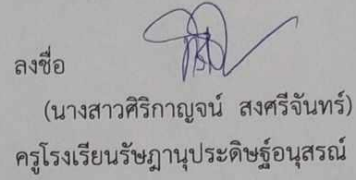 ลงชื่อ
(นางสาวศิริกาญจน์ สงศรีจันทร์)
ครูโรงเรียนรัษฎานุประดิษฐ์อนุสรณ์